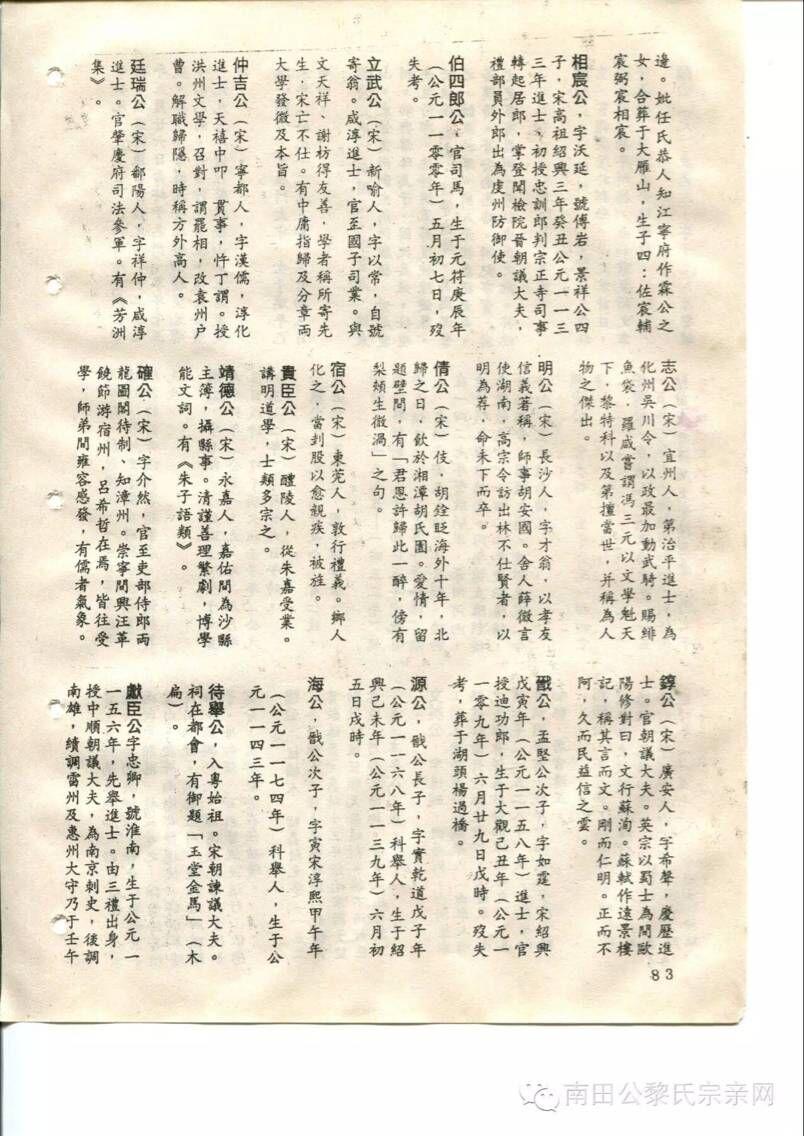 邊。妣任氏恭人知江寧府作霖公之
女，合葬于大雁山，生子四：佐宸輔
宸弼宸相宸。
相宸公，字沃延，號傅岩，景祥公四
子，宋高祖紹興三年癸丑公元一一三
三年進士，初授忠訓郎判宗正寺司事
轉起居郎，掌登聞檢院晉朝議大夫，
禮部員外郎出為虔州防御使。
伯四郎公，官司馬，生于元符庚辰年
（公元一一零零年）五月初七日，歿
失考。
立武公（宋）新喻人，字以常，自號
寄翁。咸淳進士，官至國子司業。與
文天祥、謝枋得友善，學者稱所寄先
生．宋亡不仕。有中庸指歸及分章兩
大學發微及本旨。
仲吉公（宋）寧都人，字漢儒，淳化
進士，天禧中叩 貫事，忤丁謂。授
洪州文學，召對，謂罷相，改袁州户
曹。解職歸隱，時稱方外高人。
廷瑞公（宋）鄱陽人，字祥仲，咸淳
進士。官肇慶府司法參軍。有《芳洲
集》。
志公（宋）宜州人，第治平進士，為
化州吳川令，以政最加動武騎。賜緋
魚袋．羅咸嘗謂馮三元以文學魁天
下．黎特科以及第擅當世，并稱為人
物之傑出。
明公（宋）長沙人，字才翁，以孝友
信義著稱，師事胡安國。舍人薛微言
使湖南，高宗令訪出林不仕賢者，以
明為荐，命未下而卒。
倩公（宋）伎，胡銓貶海外十年，北
歸之日，飲於湘潭胡氏園。愛情，留
題壁間，有「君恩許歸此一醉，傍有
梨頰生微渦」之句。
宿公（宋）東莞人，敦行禮義。鄉人
化之，當刲股以愈親疾，被旌。
貴臣公（宋）醴陵人，從朱嘉受業。
講明道學，士類多宗之。
靖德公（宋）永嘉人，嘉佑間為沙縣
主簿，攝縣事。清謹善理繁劇，博學
能文詞。有《朱子語類》。
確公（宋）字介然，官至吏部侍郎両
龍圖閣待制、知漳州。崇寧間興汪革
饒節游宿州，呂希哲在焉，皆往受
學，師弟間雍容感發，有儒者氣象。
錞公（宋）廣安人，字希聲，慶歷進
士。官朝議大夫。英宗以蜀士為問歐
陽修對曰，文行蘇洵。蘇軾作遠景樓
記，稱其言而文。剛而仁明。正而不
阿，久而民益信之雲。
戩公，孟堅公次子，字如霆，宋紹興
戊寅年（公元一一五八年）進士，官
授迪功郎，生于大觀己丑年（公元一
一零九年）六月廿九日戌時。歿失
考，葬于湖頭楊過橋。
源公，戩公長子，字實乾道戊子年
（公元一一六八年）科舉人，生于紹
興己未年（公元一一三九年）六月初
五日戌時。
海公，戩公次子，字寅宋淳熙甲午年
（公元一一七四年）科舉人，生于公
元一一四三年。
待舉公，入粵始祖。宋朝諫議大夫。
祠在都會，有御題「玉堂金馬」（木
扁）。
獻臣公字忠卿，號淮南，生于公元一
一五六年，先舉進士。由三禮出身，
授中順朝議大夫，為南京刺史，後調
南雄，續調雷州及惠州大守乃于壬午
83
南田公黎氏宗亲网